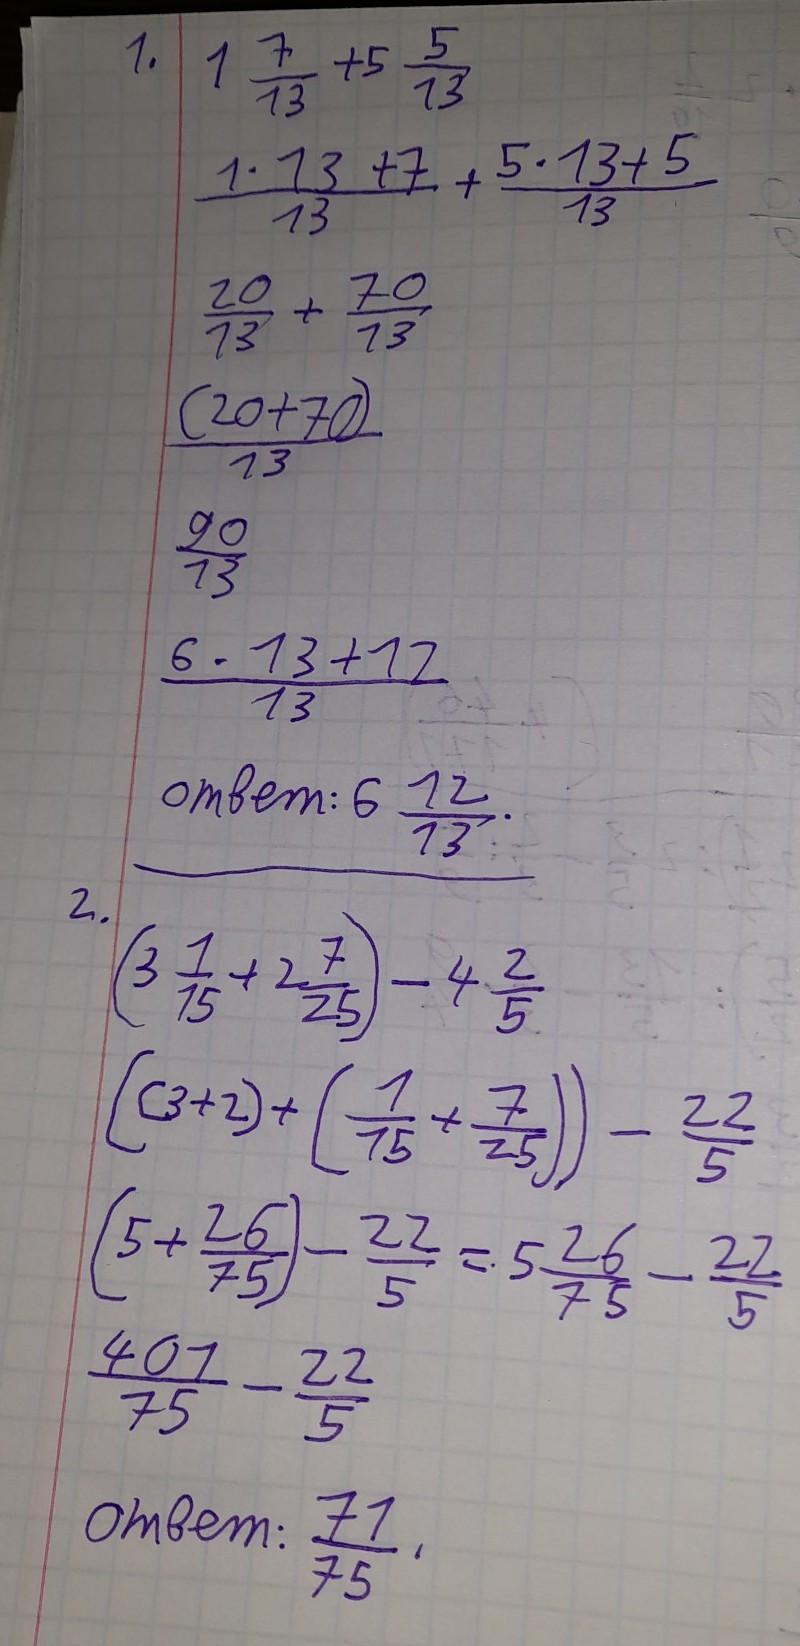 1. 1 7/13 + 5 5/13
(1·13+7)/13 + (5·13+5)/13
20/13 + 70/13
(20+70)/13
90/13
(6·13+12)/13
ответ: 6 12/13.
2.
(3 1/15 + 2 7/25) - 4 2/5
((3+2)+(1/15+7/25)) - 22/5
(5+26/75) - 22/5 = 5 26/75 - 22/5
401/75 - 22/5
ответ: 71/75.